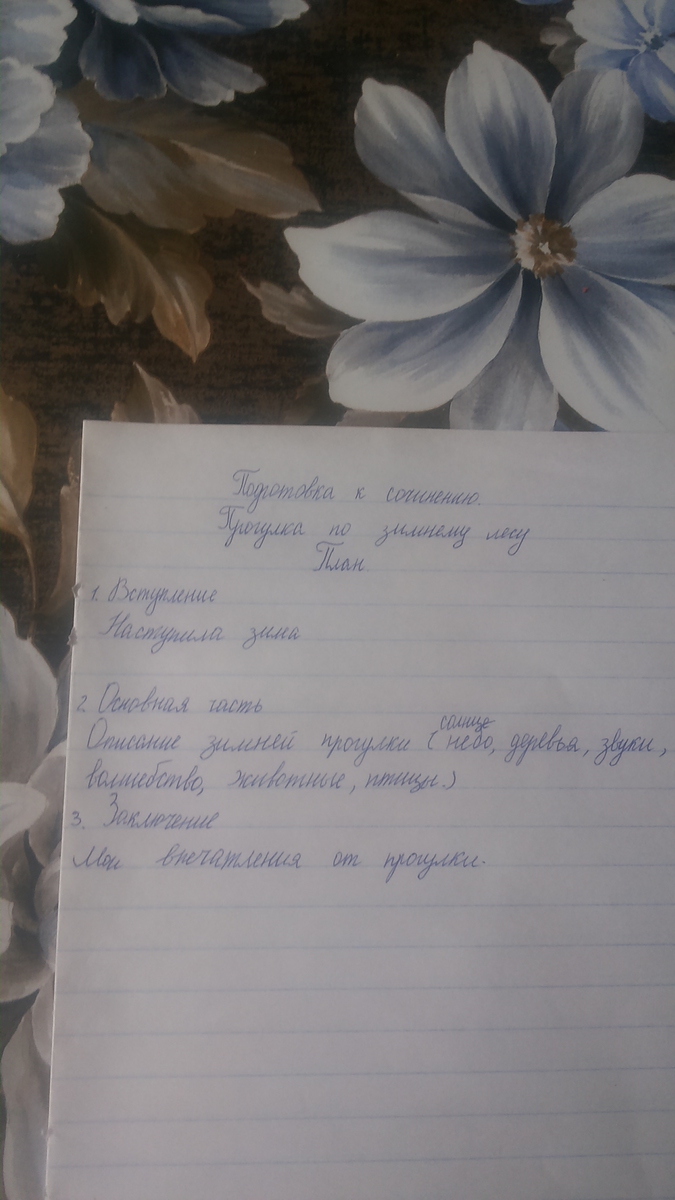 Подготовка к сочинению.
Прогулка по зимнему лесу
План
1. Вступление
Наступила зима
2. Основная часть
солнце
Описание зимней прогулки ( небо, деревья, звуки,
волшебство, животные, птицы.)
3. Заключение
Мои впечатления от прогулки.